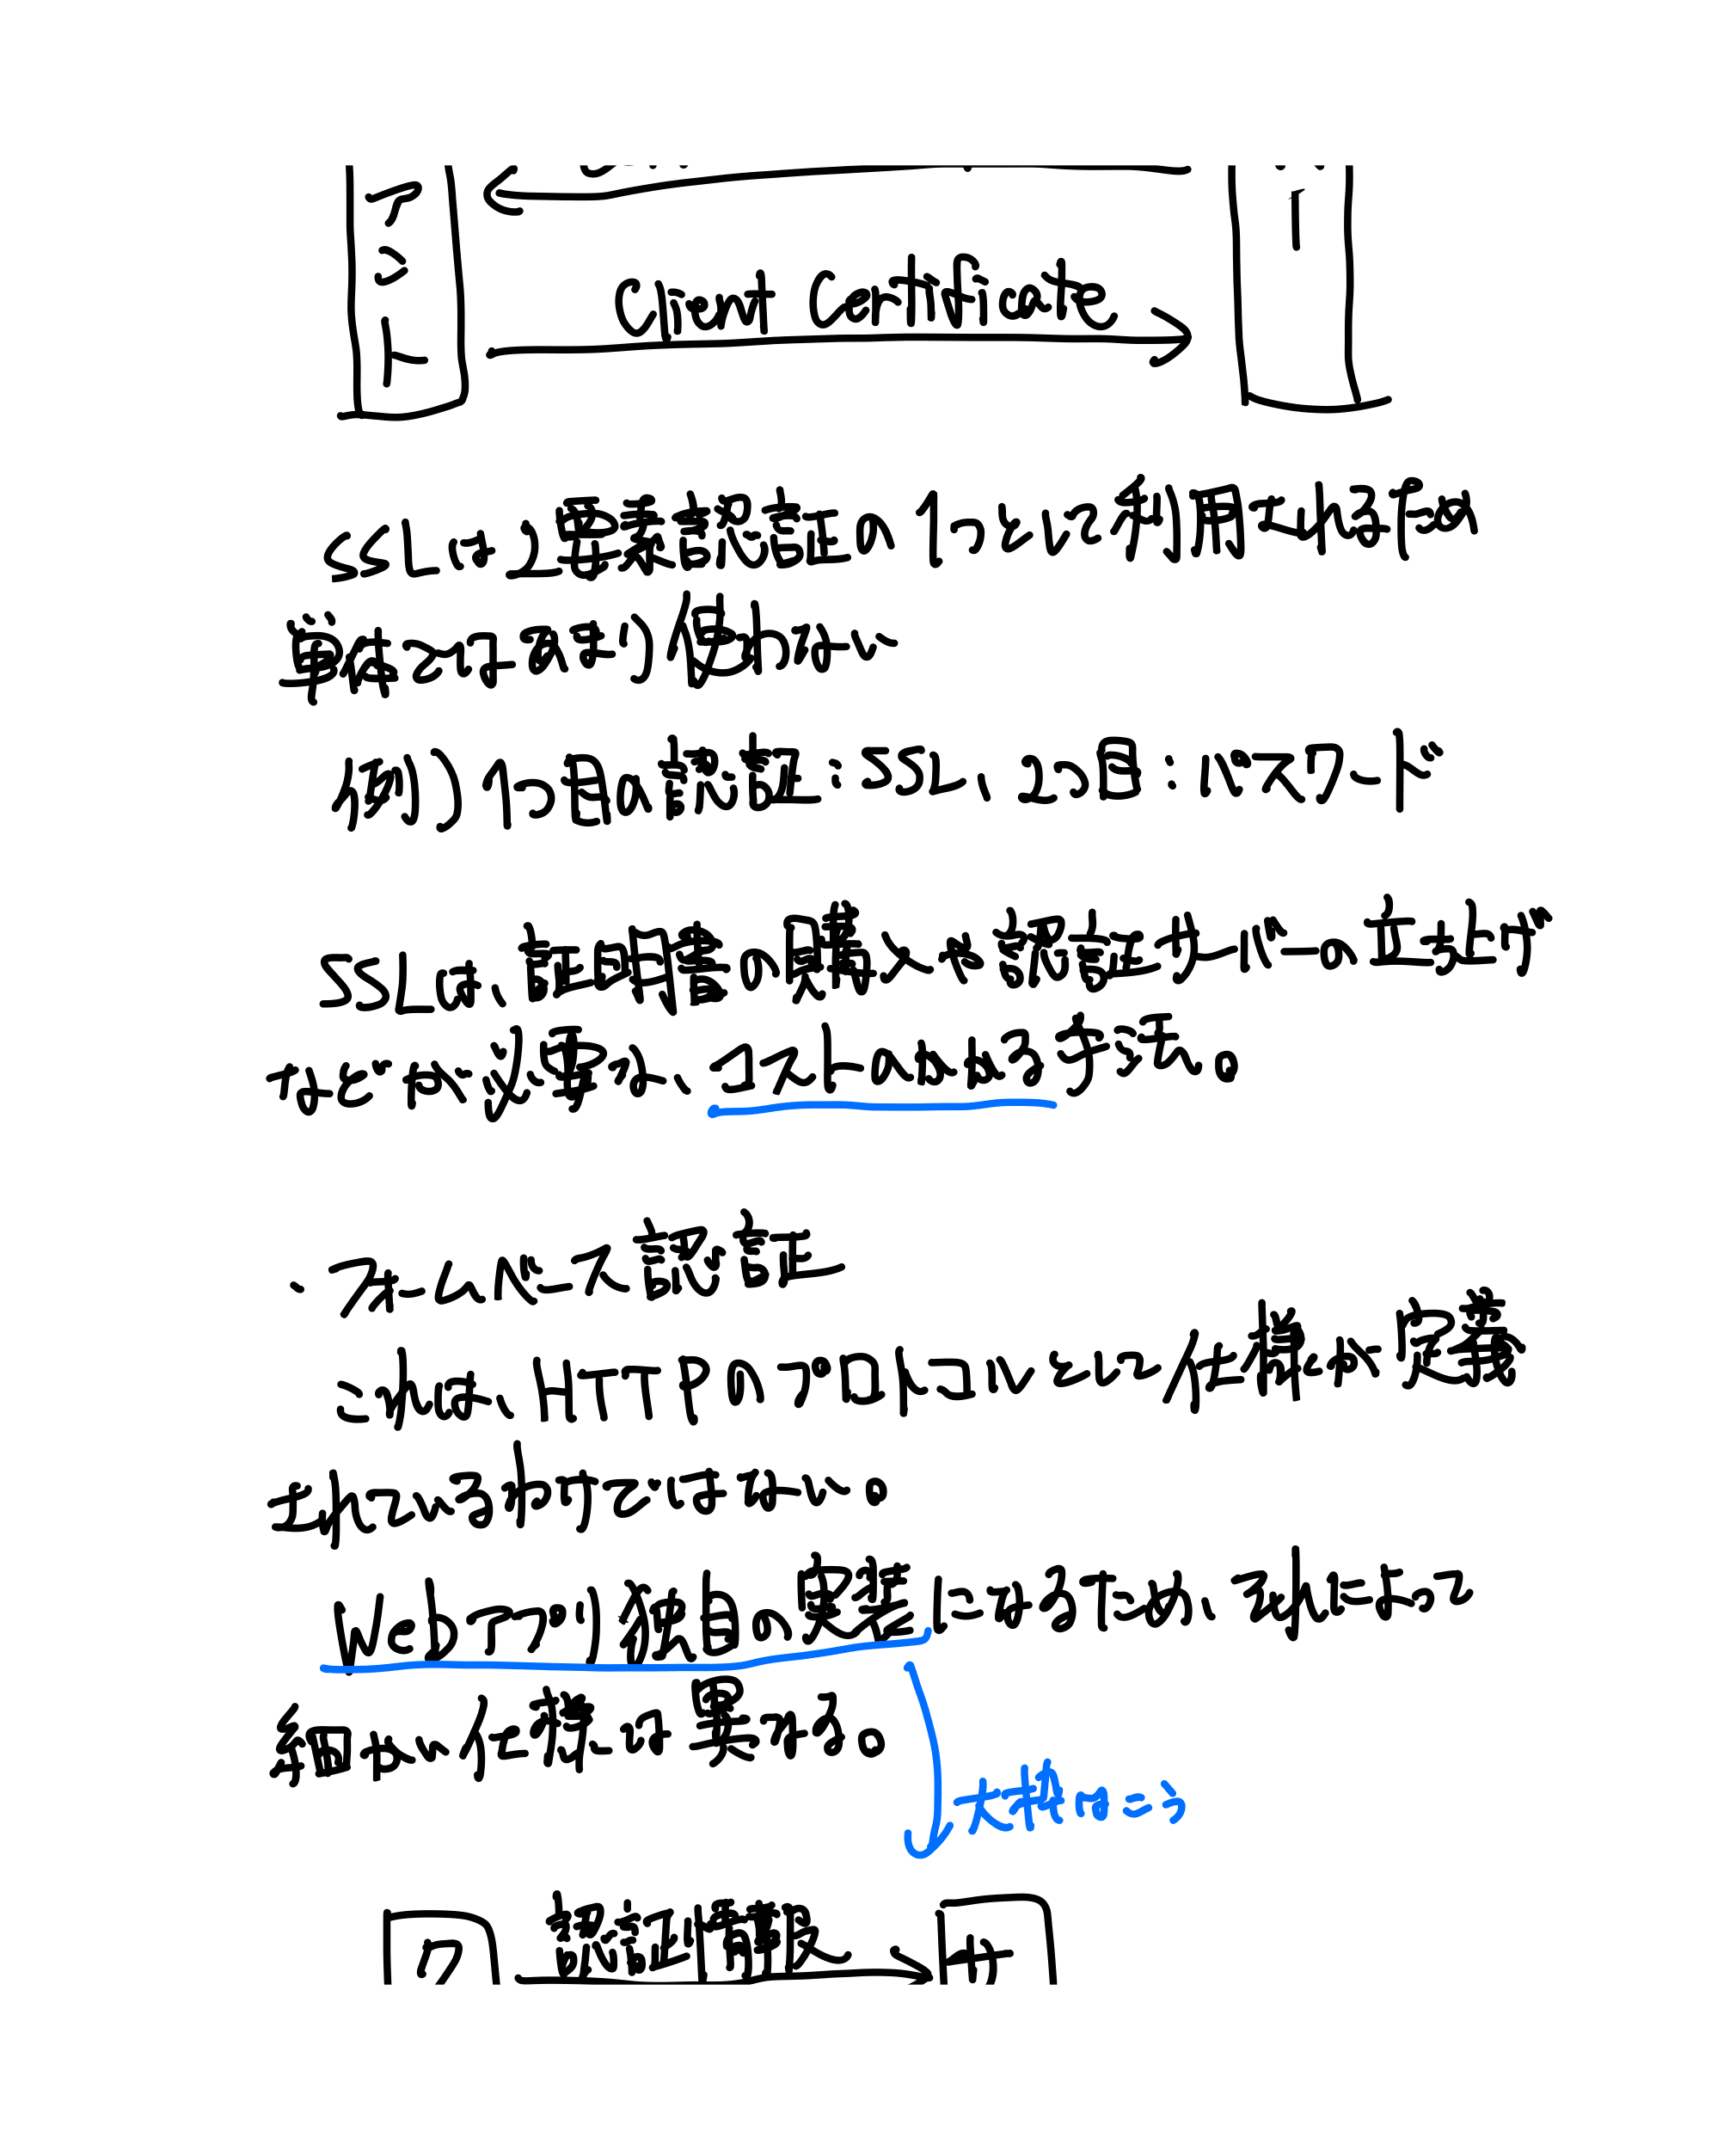 アント
Client Certificate
ー
SSLは2要素認証の1つとして利用される手段の
単体ではあまり使わない
例)1つ目の認証:SSL、2つ目:パスワード
SSLは、証明書の購入や認証サーバーの立ち上げ
などが必要で、コストのかかる方法。
・フォームベース認証
これは、HTTPのプロトコルとして仕様が定義
されているわけではない。
Webアプリ独自の実装になるため、それによって
細かい仕様は異なる。
大体はこう
認証情報入
ク
サ